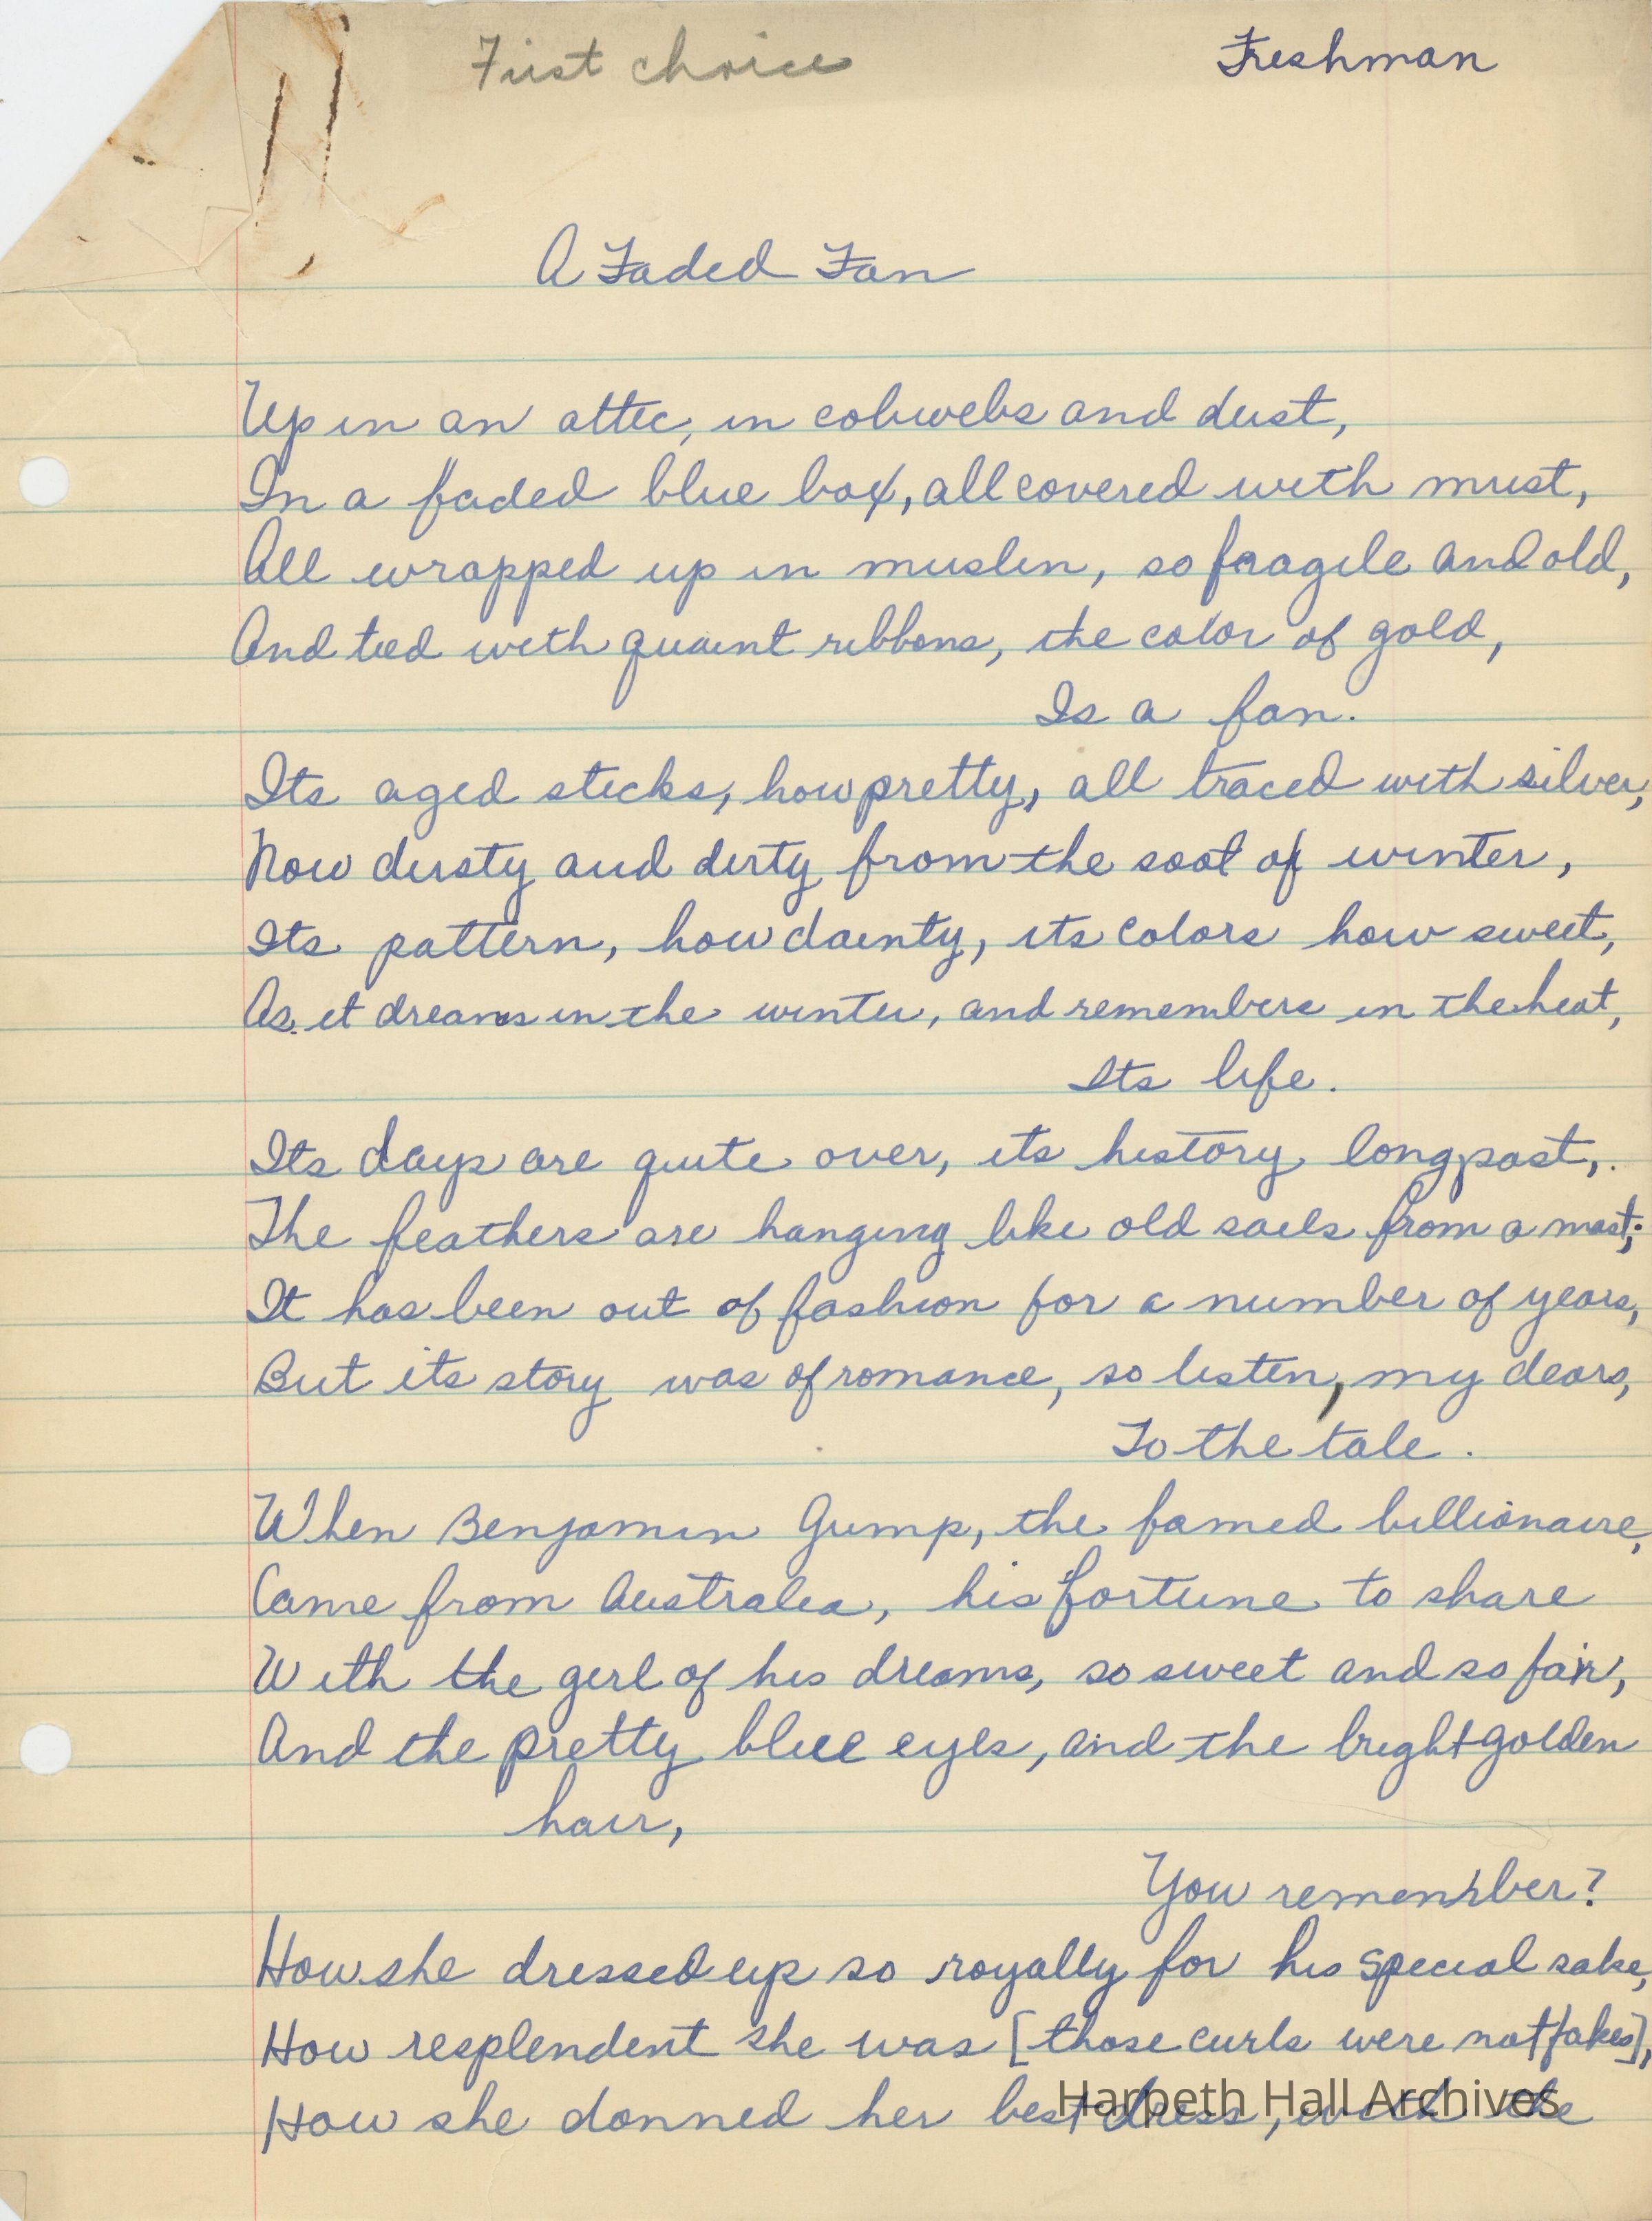 First choice
Freshman
A Faded Fan
Up in an attic, in cobwebs and dust,
In a faded blue box, all covered with must,
All wrapped up in muslin, so fragile and old,
And tied with quaint ribbons, the color of gold,
Is a fan.
Its aged sticks, how pretty, all traced with silver,
Now dusty and dirty from the soot of winter,
Its pattern, how dainty, its colors how sweet,
As it dreams in the winter, and remembers in the heat,
Its life.
Its days are quite over, its history long past,
The feathers are hanging like old sails from a mast;
It has been out of fashion for a number of years,
But its story was of romance, so listen, my dears,
To the tale.
When Benjamin Gump, the famed billionaire,
Came from Australia, his fortune to share
With the girl of his dreams, so sweet and so fair,
And the pretty blue eyes, and the bright golden
hair,
You remember?
How she dressed up so royally for his special sake,
How resplendent she was [those curls were not fakes],
How she donned her best dress, with the
Harpeth Hall Archives